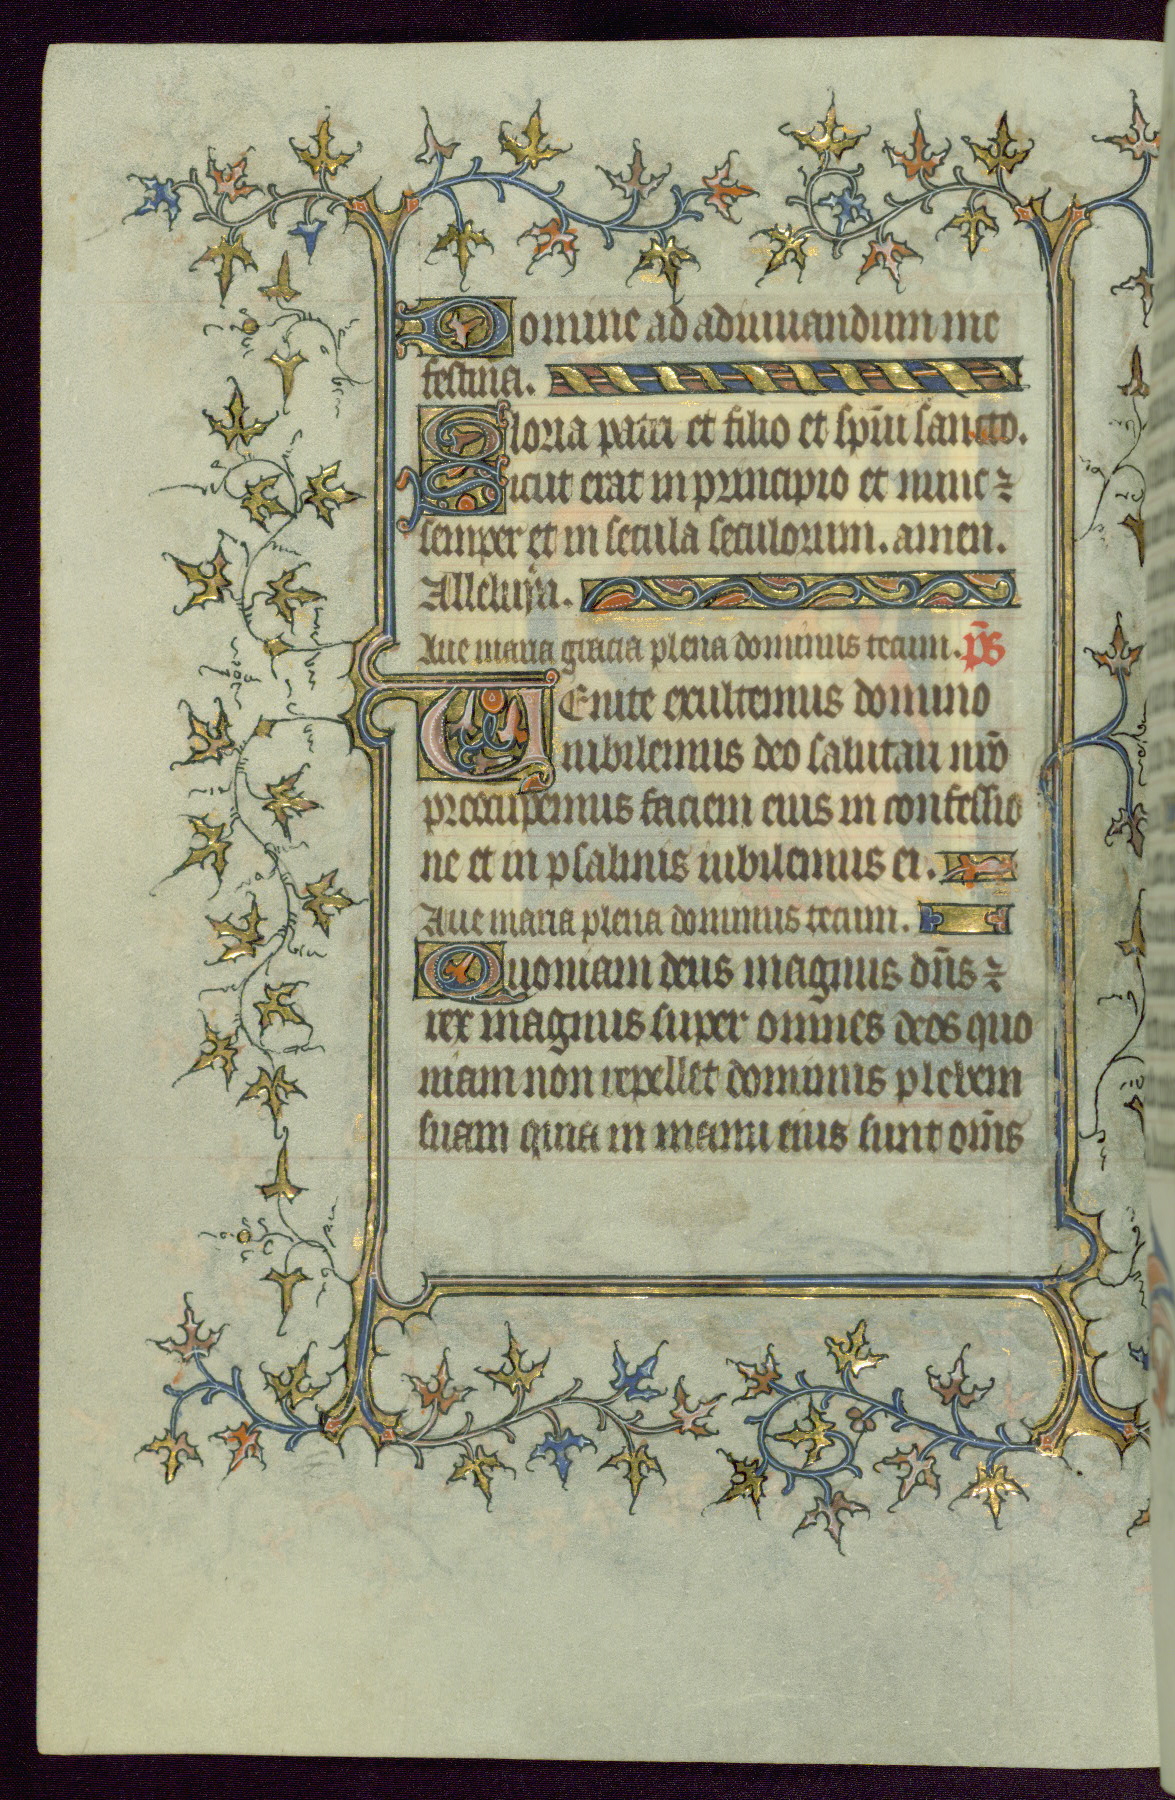 Domine ad adiuuandum me
festina.
Gloria patri et filio et sp̄iu sancto.
Sicut erat in principio et nunc ⁊
semper et in secula seculorum. amen.
Alleluya.
Aue maria gracia plena dominus tecum. p̄s
Uenite exultemus domino
iubilemus deo salutari nr̄o
preocupemus faciem eius in confessio
ne et in psalmis iubilemus ei.
Aue maria plena dominus tecum.
Quoniam deus magnus dn̄s ⁊
rex magnus super omnes deos quo
niam non repellet dominus plebem
suam quia in manu eius sunt om̄s